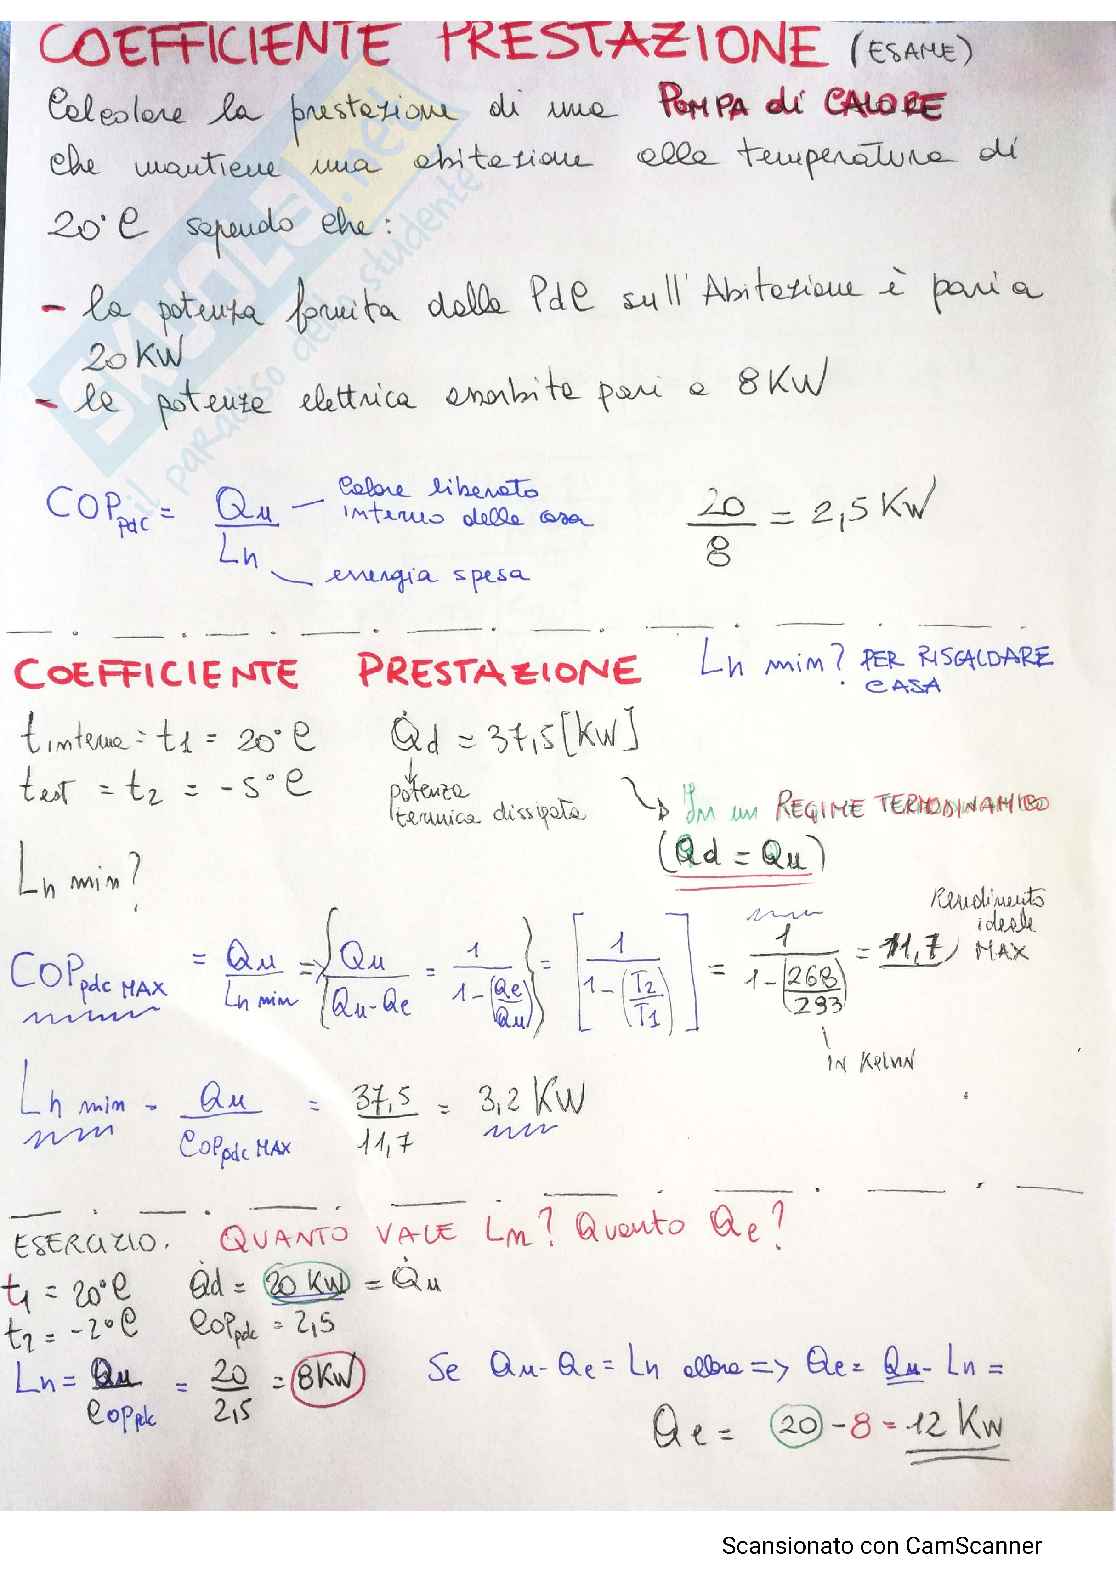 COEFFICIENTE PRESTAZIONE (ESAME)
Calcolare la prestazione di una POMPA di CALORE
che mantiene una abitazione alla temperatura di
20°C sapendo che:
- la potenza fornita dalla PdC sull'Abitazione è pari a
20 KW
- la potenza elettrica assorbita pari a 8 KW
COP pdc = Qu / Ln
Calore liberato
interno della casa
energia spesa
20 / 8 = 2,5 KW
COEFFICIENTE PRESTAZIONE
Ln min? PER RISCALDARE
CASA
t interna = t1 = 20°C
Q̇d = 37,5 [KW]
test = t2 = -5°C
potenza
termica dissipata
In un REGIME TERMODINAMICO
(Qd = Qu)
Ln min?
COP pdc MAX = Qu / Ln min => { Qu / (Qu-Qe) = 1 / (1-(Qe/Qu)) } = [ 1 / (1-(T2/T1)) ] = 1 / (1-(268/293)) = 11,7
Rendimento
ideale
MAX
IN KELVIN
Ln min = Qu / COP pdc MAX = 37,5 / 11,7 = 3,2 KW
ESERCIZIO. QUANTO VALE Ln? Quanto Qe?
t1 = 20°C Q̇d = 20 KW = Q̇u
t2 = -2°C COP pdc = 2,5
Ln = Qu / COP pdc = 20 / 2,5 = 8 KW
Se Qu-Qe = Ln allora => Qe = Qu - Ln =
Qe = 20 - 8 = 12 KW
SKUOLA.net
il paradiso dello studente
Scansionato con CamScanner